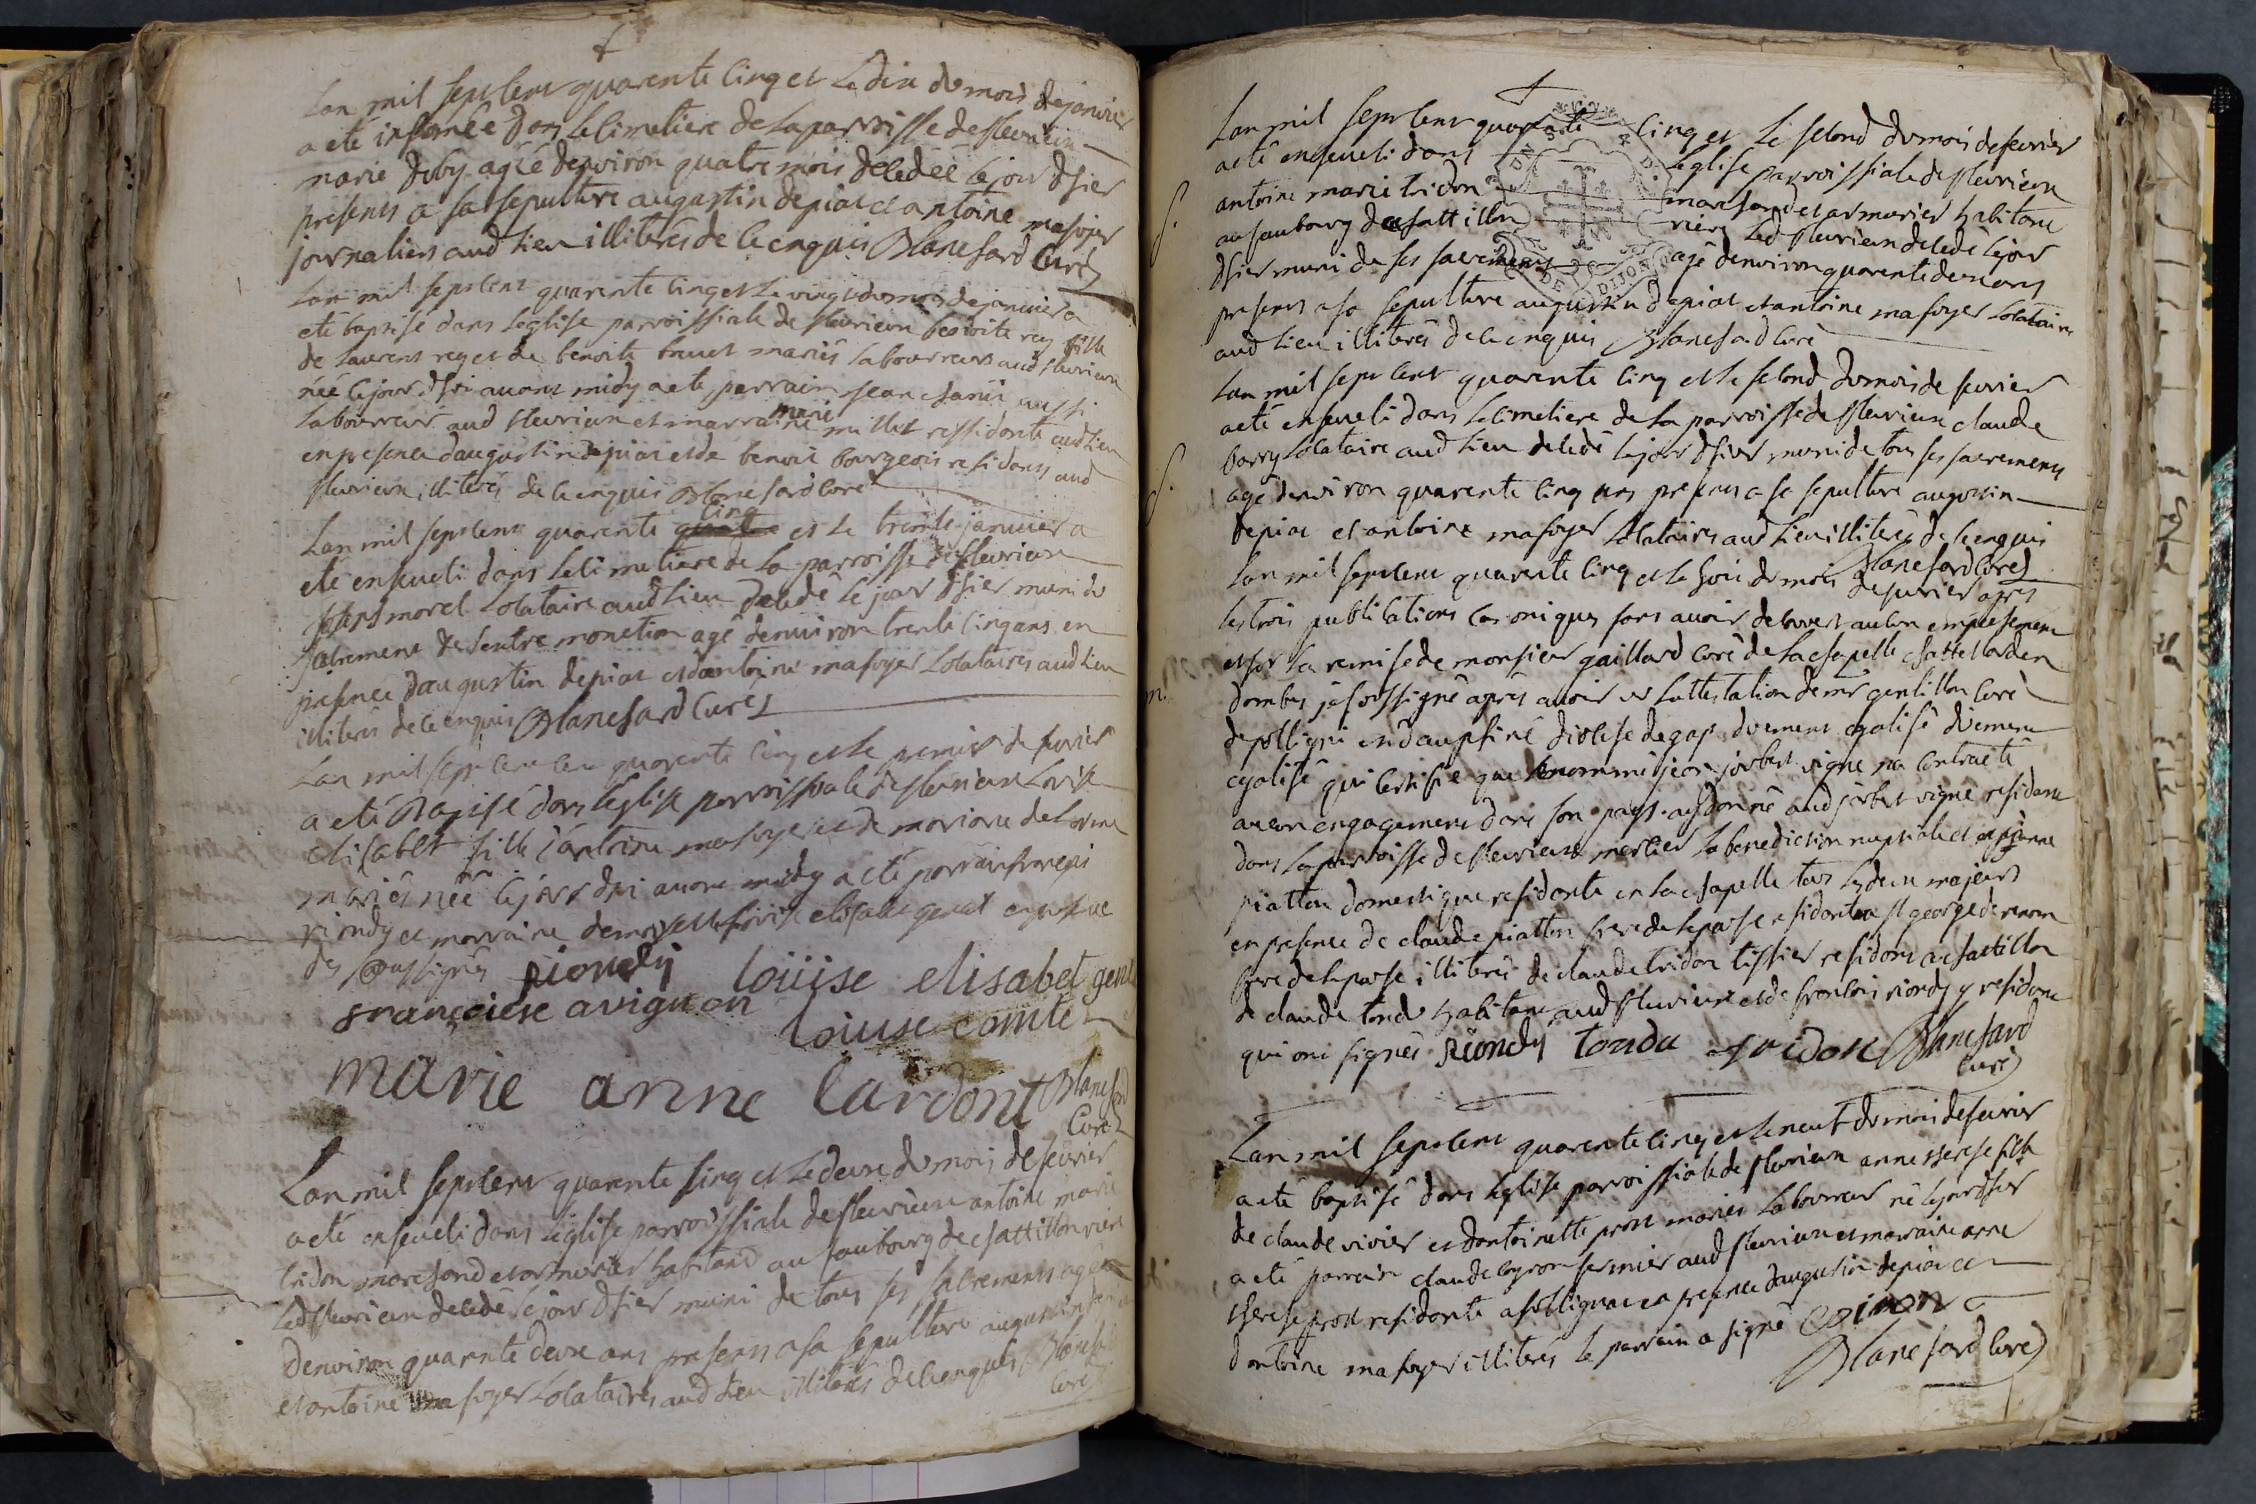 Lan mil sept cent quarente cinq et le dix du mois de janvier
a eté inhumée dans le cimetiere de la parroisse de fleurieu
marie duby agée denviron quatre mois decedée le jour dhier
presents a sa sepulture augustin depiat et antoine mafoyer
journaliers aud lieu illiterés de ce enquis Blanchard Curé
Lan mil sept cent quarente cinq et le vingt du mois de janvier a
eté baptisé dans leglise parroissiale de fleurieu benoite rey fille
de laurent rey et de benoite brust mariés laboureurs aud fleurieu
née le jour dhier avant midy a ete parrain jean chanu aussi
laboureur aud fleurieu et marraine marie millet residante aud lieu
en presence daugustin depiat et de benoit bourgeois residants aud
fleurieu illiterés de ce enquis Blanchard Curé
Lan mil sept cent quarente cinq et le trente janvier a
eté enseveli dans le cimetiere de la parroisse de fleurieu
joseph morel locataire aud lieu decedé le jour dhier muni du
sacrement de lextre monction agé denviron trente cinq ans en
presence daugustin depiat et dantoine mafoyer locataires aud lieu
illiterés de ce enquis Blanchard Curé
Lan mil sept cent quarente cinq et le premier de fevrier
a eté Bapisé dans leglise parroissiale de fleurieu Louise
elisabet fille dantoine mafoyer et de mariane delorme
mariés née le jour dhier avant midy a eté parrain françois
riondy et marraine demoyselle louise elisabet genet en presence
des soussignés riondy loüise elisabet gene
françoiese avignon Louise comte
marie anne lardont Blanchard
Curé
Lan mil sept cent quarente sinq et le deux du mois de fevrier
a eté enseveli dans leglise parroissiale de fleurieu antoine marie
tridon marchand et armurier habitant au faubourg de chattillon riere
led fleurieu decedé le jour dhier muni de tous ses sacrements agé
denviron quarente deux ans presents a sa sepulture augustin depiat
et antoine mafoyer locataires aud lieu illiterés de ce enquis Blanchard
Curé
Lan mil sept cent quarante cinq et le second du mois de fevrier
a eté enseveli dans leglise parroissiale de fleurieu
antoine marie tridon marchand et armurier habitant
au faubourg de chattillon riere led fleurieu decedé le jour
dhier muni de ses sacrements agé denviron quarente deux ans
presents a sa sepulture augustin depiat et antoine mafoyer locataire
aud lieu illiterés de ce enquis Blanchard Curé
S.
Lan mil sept cent quarente cinq et le second du mois de fevrier
a eté enseveli dans le cimetiere de la parroisse de fleurieu claude
barry locataire aud lieu decedé le jour dhier muni de tous ses sacrements
agé denviron quarente cinq ans presents a sa sepulture augustin
depiat et antoine mafoyer locataires aud lieu illiterés de ce enquis
Blanchard Curé
S.
Lan mil sept cent quarente cinq et le huit du mois de fevrier apres
les trois publications canoniques sans avoir decouvert aucun empechement
et sur la remise de monsieur gaillard curé de la chapelle chattelard en
dombes je soussigné aprés avoir vu lattestation de mr gentillon curé
de polligni en daupfiné diocese de gap duement egalisé duement
egalisé qui certifie que le nommé jean joubert vigne na contracté
aucun engagement dans son pays ay donné aud joubert vigne residant
dans la parroisse de fleurieu mercier la benediction nuptiale et a jeanne
piatton domestique residante en la chapelle tous les deux majeurs
en presence de claude piatton frere de lepouse residant a st george de renom
frere de lepouse illiterés de claude tridon tissier residant a chattillon
de claude tondu habitant aud fleurieu et de françois riondy y residant
qui ont signés riondy tondu tridon Blanchard
Curé
m.
Lan mil sept cent quarente cinq et le neuf du mois de fevrier
a eté baptisé dans leglise parroissiale de fleurieu anne therese fille
de claude vivier et dantoinette prost mariés laboureur né le jour dhier
a eté parrain claude coynon fermier aud fleurieu et marraine anne
therese prost residante a sollignat en presence daugustin depiat et
dantoine mafoyer illiterés le parrain a signé coinon
Blanchard Curé